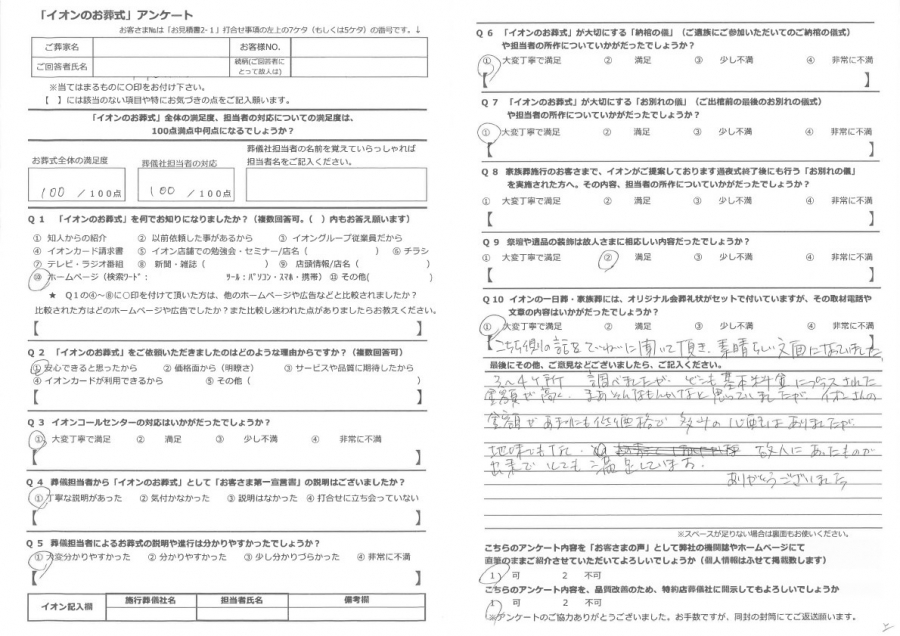 「イオンのお葬式」アンケート
お客さま№は「お見積書2-1」打合せ事項の左上の7ケタ（もしくは5ケタ）の番号です。↓
ご葬家名 お客様NO.
ご回答者氏名 続柄(ご回答者にとって故人は)
※当てはまるものに○印をお付け下さい。
【 】には該当のない項目や特にお気づきの点をご記入願います。
「イオンのお葬式」全体の満足度、担当者の対応についての満足度は、
100点満点中何点になるでしょうか？
お葬式全体の満足度 葬儀社担当者の対応 葬儀社担当者の名前を覚えていらっしゃれば
担当者名をご記入ください。
100 / 100点 100 / 100点
Q 1 「イオンのお葬式」を何でお知りになりましたか？（複数回答可。（ ）内もお答え願います）
① 知人からの紹介 ② 以前依頼した事があるから ③ イオングループ従業員だから
④ イオンカード請求書 ⑤ イオン店舗での勉強会・セミナー/店名（ ） ⑥ チラシ
⑦ テレビ・ラジオ番組 ⑧ 新聞・雑誌（ ） ⑨ 店頭情報/店名（ ）
⑩ ホームページ（検索ﾜｰﾄﾞ： ﾂｰﾙ：ﾊﾟｿｺﾝ・ｽﾏﾎ・携帯） ⑪ その他( )
★ Q1の④～⑩に○印を付けて頂いた方は、他のホームページや広告などと比較されましたか？
比較された方はどのホームページや広告でしたか？また比較し迷われた点がありましたらお教えください。
【 】
Q 2 「イオンのお葬式」をご依頼いただきましたのはどのような理由からですか？（複数回答可）
① 安心できると思ったから ② 価格面から（明瞭さ） ③ サービスや品質に期待したから
④ イオンカードが利用できるから ⑤ その他（ ）
【 】
Q 3 イオンコールセンターの対応はいかがだったでしょうか？
① 大変丁寧で満足 ② 満足 ③ 少し不満 ④ 非常に不満
【 】
Q 4 葬儀担当者から「イオンのお葬式」として「お客さま第一宣言書」の説明はございましたか？
① 丁寧な説明があった ② 気付かなかった ③ 説明はなかった ④ 打合せに立ち会っていない
【 】
Q 5 葬儀担当者によるお葬式の説明や進行は分かりやすかったでしょうか？
① 大変分かりやすかった ② 分かりやすかった ③ 少し分かりづらかった ④ 非常に不満
【 】
イオン記入欄 施行葬儀社名 担当者氏名 備考欄
Q 6 「イオンのお葬式」が大切にする「納棺の儀」（ご遺族にご参加いただいてのご納棺の儀式）
や担当者の所作についていかがだったでしょうか？
① 大変丁寧で満足 ② 満足 ③ 少し不満 ④ 非常に不満
【 】
Q 7 「イオンのお葬式」が大切にする「お別れの儀」（ご出棺前の最後のお別れの儀式）
や担当者の所作についていかがだったでしょうか？
① 大変丁寧で満足 ② 満足 ③ 少し不満 ④ 非常に不満
【 】
Q 8 家族葬施行のお客さまで、イオンがご提案しております通夜式終了後にも行う「お別れの儀」
を実施された方へ。その内容、担当者の所作についていかがだったでしょうか？
① 大変丁寧で満足 ② 満足 ③ 少し不満 ④ 非常に不満
【 】
Q 9 祭壇や遺品の装飾は故人さまに相応しい内容だったでしょうか？
① 大変丁寧で満足 ② 満足 ③ 少し不満 ④ 非常に不満
【 】
Q 10 イオンの一日葬・家族葬には、オリジナル会葬礼状がセットで付いていますが、その取材電話や
文章の内容はいかがだったでしょうか？
① 大変丁寧で満足 ② 満足 ③ 少し不満 ④ 非常に不満
【こちら側の話をていねいに聞いて頂き、素晴らしい文面になっていました】
最後にその他、ご意見などございましたら、ご記入ください。
3～4ヶ所 調べましたが、どこも基本料金にプラスされた
金額が高く、まあそんなもんかなと思っていましたが、イオンさんの
金額があまりにも低価格で 多少の心配はありましたが
地味でもなく、 故人にあったものが
出来てとても満足しています。
ありがとうございました
※スペースが足りない場合は裏面もお使いください。
こちらのアンケート内容を「お客さまの声」として弊社の機関誌やホームページにて
直筆のままご紹介させていただいてよろしいでしょうか（個人情報はふせて掲載致します）
1 可 2 不可
こちらのアンケート内容を、品質改善のため、特約店葬儀社に開示してもよろしいでしょうか
1 可 2 不可
※アンケートのご協力ありがとうございました。お手数ですが、同封の封筒にてご返送願います。